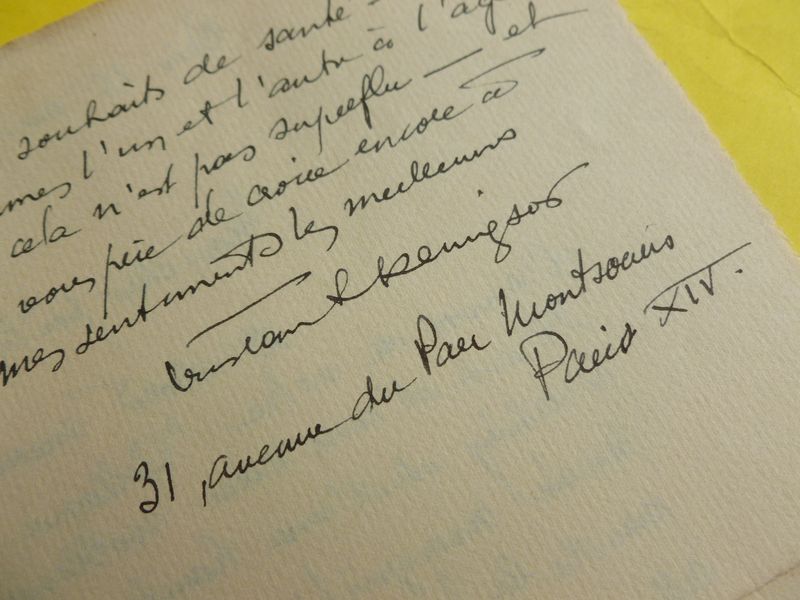 souhaits de santé -
mes l'un et l'autre à l'âge
cela n'est pas superflu — et
vous prie de croire encore à
mes sentiments les meilleurs
Tristan Klingsor
31, avenue du Parc Montsouris
Paris XIV.